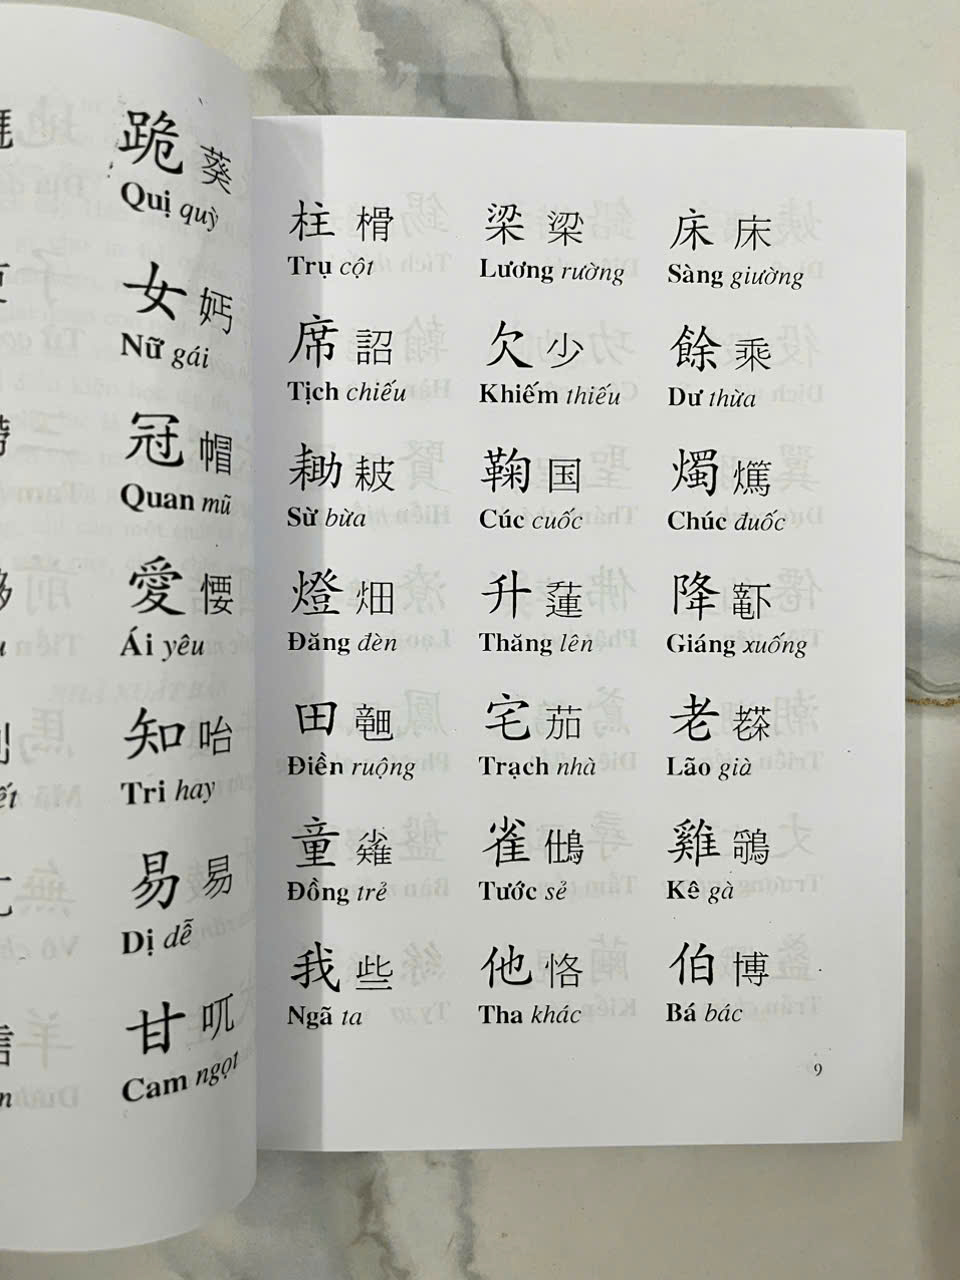 跪 葵
Quị quỳ
女 妈
Nữ gái
冠 帽
Quan mũ
愛 㤇
Ái yêu
知 咍
Tri hay
易 易
Dị dễ
甘
Cam ngọt
柱 榾 梁 梁 床 床
Trụ cột Lương rường Sàng giường
席 詔 欠 少 餘 乘
Tịch chiếu Khiếm thiếu Dư thừa
耡 耚 鞠 国 燭
Sừ bừa Cúc cuốc Chúc đuốc
燈 畑 升 蓮 降
Đăng đèn Thăng lên Giáng xuống
田 宅 茄 老
Điền ruộng Trạch nhà Lão già
童 雀 雞
Đồng trẻ Tước sẻ Kê gà
我 些 他 恪 伯 博
Ngã ta Tha khác Bá bác
9